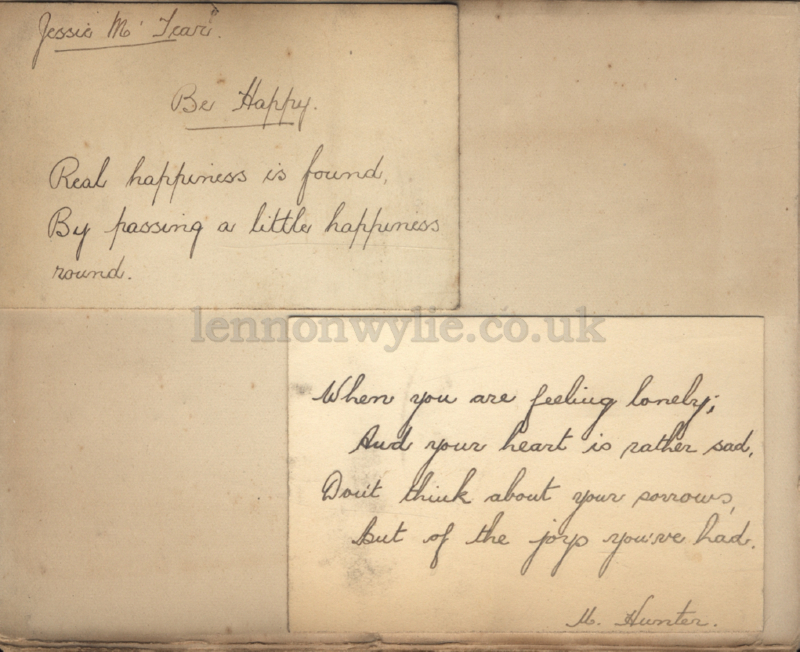 Jessie Mc Tear.
Be Happy.
Real happiness is found,
By passing a little happiness
round.
lennonwylie.co.uk
When you are feeling lonely;
And your heart is rather sad,
Don't think about your sorrows,
But of the joys you've had.
M. Hunter.